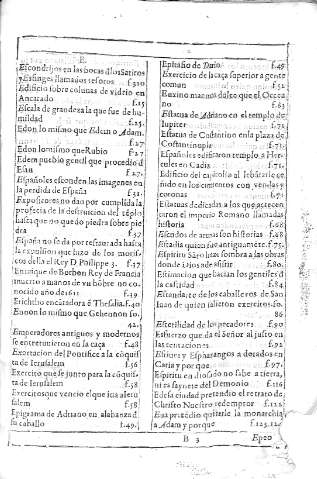 E.
Escondrijos en las bocas de los Satiros
y Esfinges llamados tesoros f.310
Edificio sobre colunas de vidrio en
f.15
Escala de grandeza la que fue de hu-
mildad f.25.
Edon lo mismo que Edem o Adam.
f.27
Edon lo mismo que Rubio f.27
Edem pueblo gentil que procedio de
Esau f.27.
Españoles esconden las imagenes en
la perdida de España f.31.
Expositores no dan por cumplida la
profecia de la destruicion del tẽplo
hasta que no quedò piedra sobre pie
dra f.37
España no se da por restaurada hasta
la expulsion que hizo de los moris-
cos della el Rey D. Phillipe 3. f.47
Enrrique de Borbon Rey de Francia
muerto a manos de vn hõbre no co-
nocido año de 1611 f.39
Erichtho encantadora de Thesalia. f.40
Ennon lo mismo que Gehennon fo.
42.
Emperadores antiguos y modernos
se entretuuieron en la caça f.48
Exortacion del Pontifice a la cõquis
ta de Ierusalem f.56
Exercito que se junto para la cõquis-
ta de Ierusalem f.58
Exercitos que vencio el que iva a Ieru
salem f.58
Epigrama de Adriano en alabanza de
su caballo f.49.
Epitafio de f.49
Exercicio de la caça superior a gente
comun f.52
Euxino mar mas dulce que el Occea
no f.63
Estatua de Adriano en el templo de
Iupiter f.71
Estatua de Constantino en la plaza de
Costantinopla f.71.
Españoles edificaron templo a Her-
cules en Cadiz f.71.
nido en los cimientos con velas y
coronas f.71
Estatuas dedicadas a los que acrecen
taron el imperio Romano llamadas
historia f.68
Escudos de armas son historias f.68.
Estadia quien fue antiguamẽte. f.75.
Espiritu Sãto haze sombra a las obras
don de Dios assiste f.80.
Estimacion que hazian los gentiles de
la castidad f.84
Estandarte de los caballeros de San
Iuan de quien salieron exercitos. fo.
86
Esterilidad de los pecadores f.90
Esfuerzo que da el Señor al justo en
las tentaciones f.92
f.97.
Espiritu endiosado no sabe a tierra,
ni es saynete del Demonio f.116
Edefa ciudad pretendio el retrato de
Christo Nuestro redemptor f.122
Eua pretẽdio quitarle la monarchia
a Adam y porque f.123.124
B 3